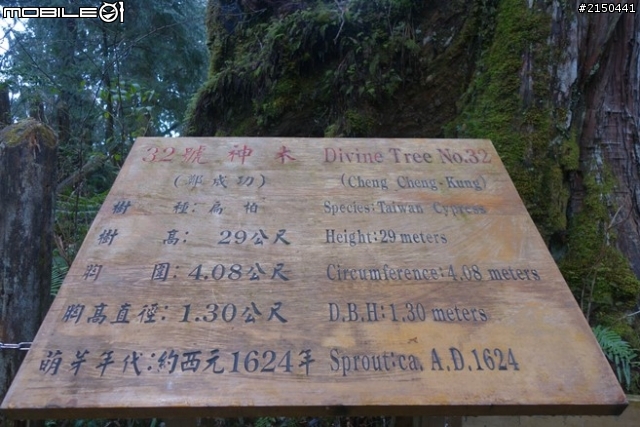 MOBILE01
#2150441
32號神木 Divine Tree No.32
(鄭成功) (Cheng Cheng-Kung)
樹種:扁柏 Species:Taiwan Cypress
樹高: 29公尺 Height:29 meters
胸圍:4.08公尺 Circumference:4.08 meters
胸高直徑:1.30公尺 D.B.H:1.30 meters
萌芽年代:約西元1624年 Sprout:ca. A.D.1624